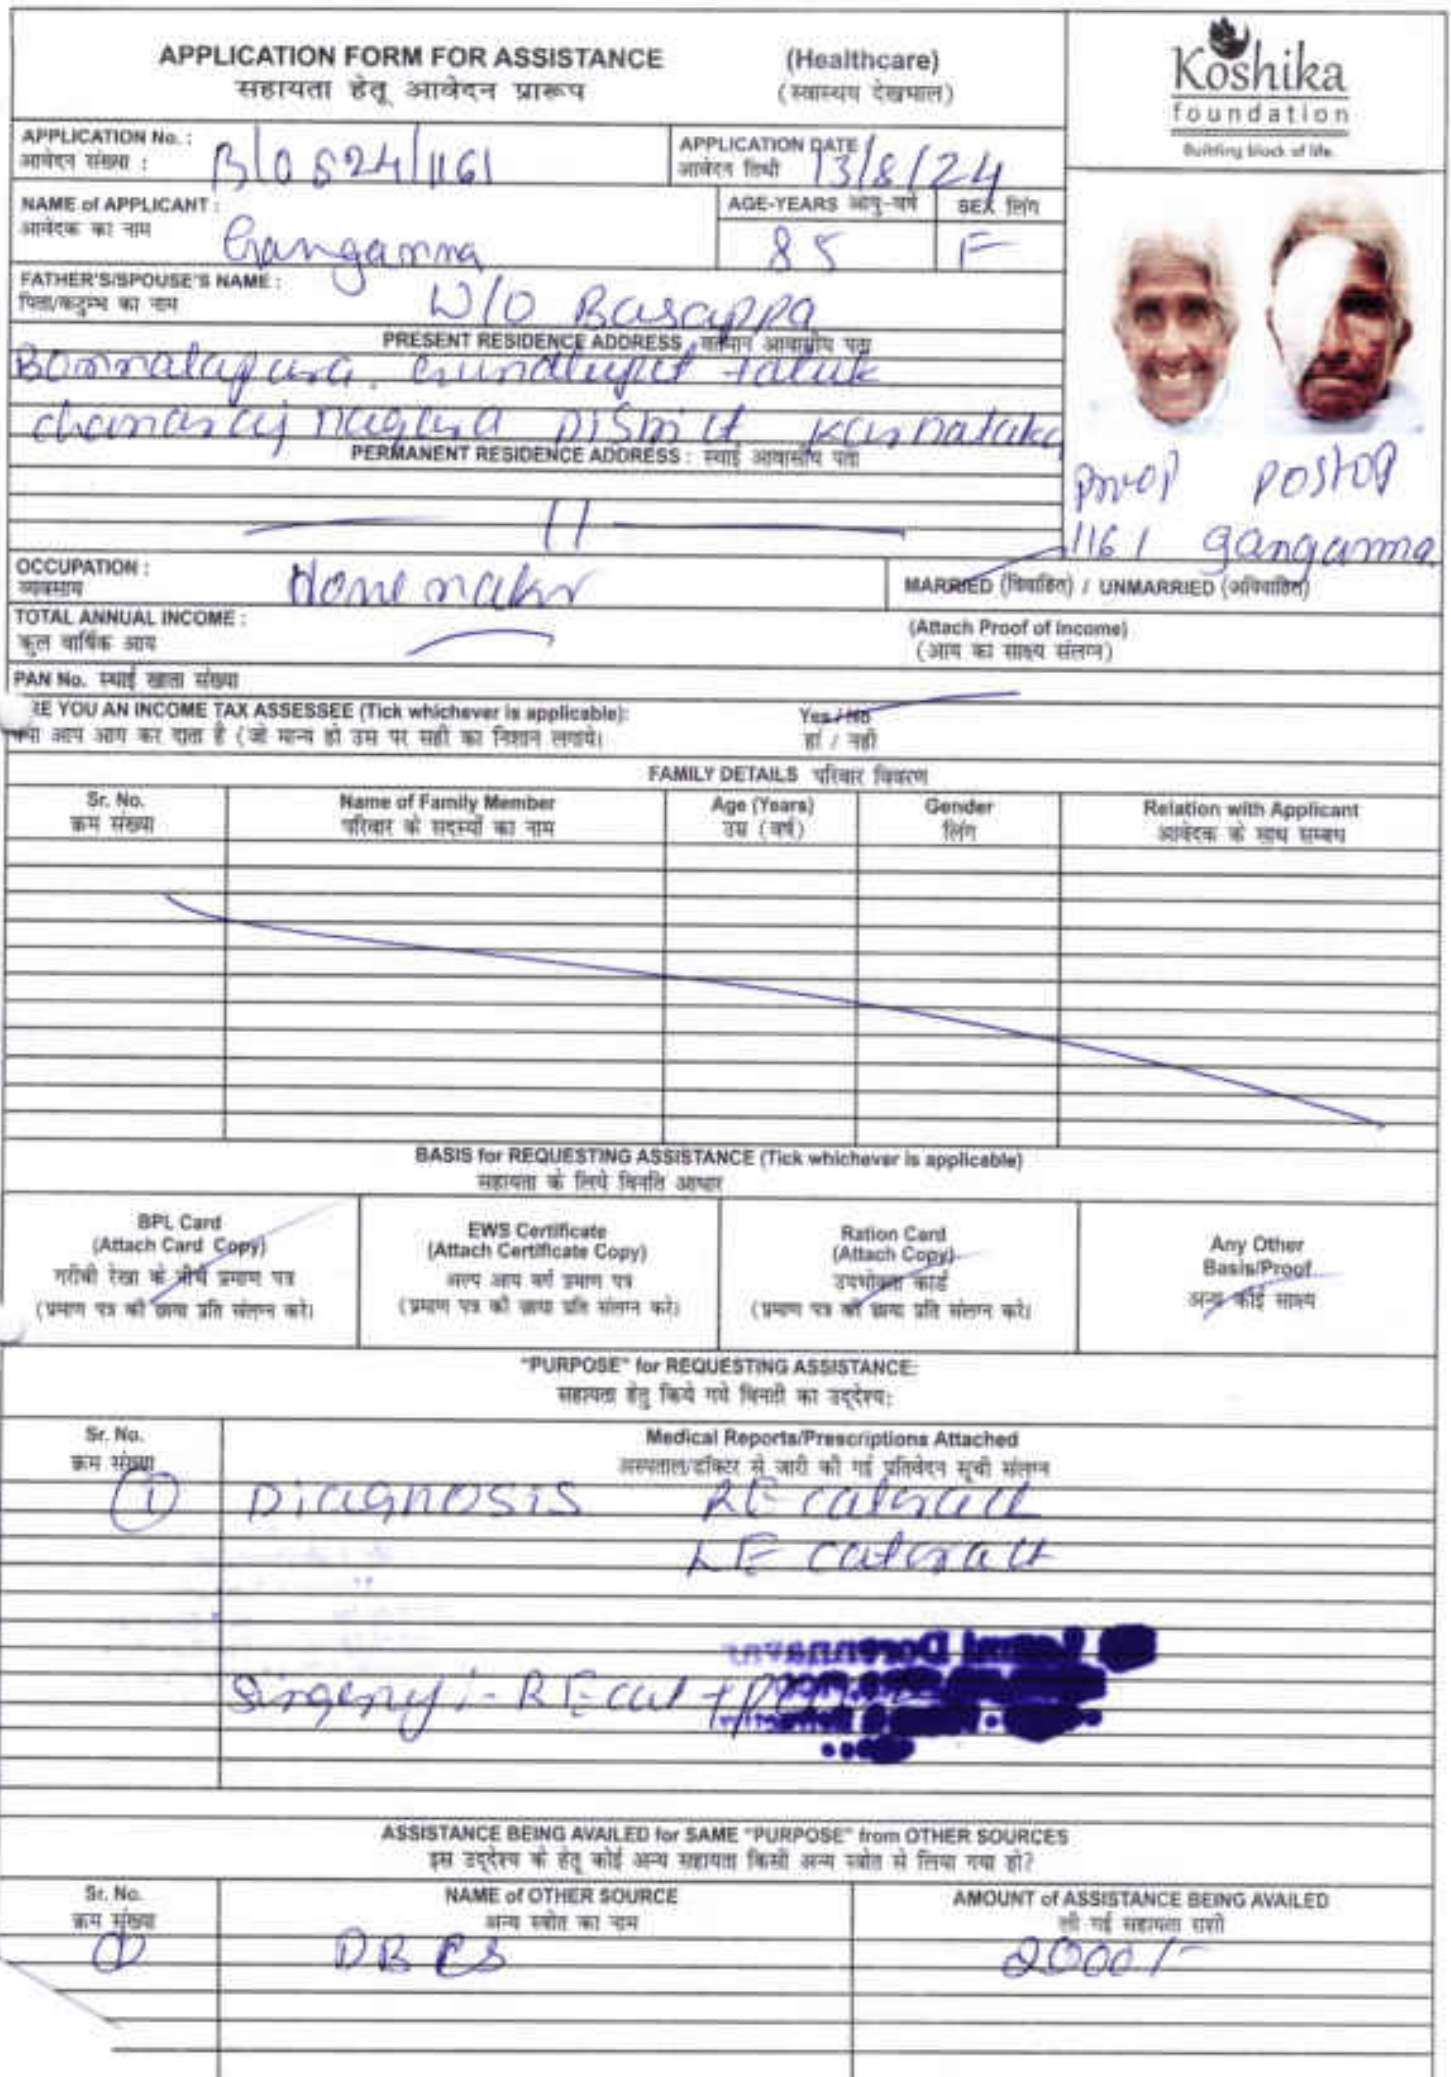 APPLICATION FORM FOR ASSISTANCE (Healthcare)
सहायता हेतू आवेदन प्रारूप (स्वास्थय देखभाल)
Koshika
foundation
Building block of life.
APPLICATION No. :
आवेदन संख्या :
B/0824/1161
APPLICATION DATE
आवेदन तिथी
13/8/24
NAME of APPLICANT :
आवेदक का नाम
Gangamma
AGE-YEARS आयु-वर्ष
85
SEX लिंग
F
FATHER'S/SPOUSE'S NAME :
पिता/कटुम्भ का नाम
W/O Basappa
PRESENT RESIDENCE ADDRESS वर्तमान आवासीय पता
Bommalapura. Gundlupet taluk
chamarajnagara District Karnataka
PERMANENT RESIDENCE ADDRESS : स्थाई आवासीय पता
11
preop postop
1161 gangamma
OCCUPATION :
व्यवसाय
Homemaker
MARRIED (विवाहित) / UNMARRIED (अविवाहित)
TOTAL ANNUAL INCOME :
कुल वार्षिक आय
(Attach Proof of Income)
(आय का साक्ष्य संलग्न)
PAN No. स्थाई खाता संख्या
RE YOU AN INCOME TAX ASSESSEE (Tick whichever is applicable):
क्या आप आय कर दाता है (जो मान्य हो उस पर सही का निशान लगाये।
Yes / No
हां / नहीं
FAMILY DETAILS परिवार विवरण
Sr. No. Name of Family Member Age (Years) Gender Relation with Applicant
क्रम संख्या परिवार के सदस्यों का नाम उम्र (वर्ष) लिंग आवेदक के साथ सम्बध
BASIS for REQUESTING ASSISTANCE (Tick whichever is applicable)
सहायता के लिये विनति आधार
BPL Card
(Attach Card Copy)
गरीबी रेखा के नीचे प्रमाण पत्र
(प्रमाण पत्र की छाया प्रति संलग्न करे।
EWS Certificate
(Attach Certificate Copy)
अल्प आय वर्ग प्रमाण पत्र
(प्रमाण पत्र की छाया प्रति संलग्न करे।
Ration Card
(Attach Copy)
उपभोक्ता कार्ड
(प्रमाण पत्र की छाया प्रति संलग्न करे।
Any Other
Basis/Proof
अन्य कोई साक्ष्य
"PURPOSE" for REQUESTING ASSISTANCE:
सहायता हेतु किये गये विनती का उद्देश्य:
Sr. No. Medical Reports/Prescriptions Attached
क्रम संख्या अस्पताल/डॉक्टर से जारी की गई प्रतिवेदन सूची संलग्न
1 Diagnosis RE cataract
LE cataract
Surgery :- RE cat +
ASSISTANCE BEING AVAILED for SAME "PURPOSE" from OTHER SOURCES
इस उद्देश्य के हेतू कोई अन्य सहायता किसी अन्य स्त्रोत से लिया गया हो?
Sr. No. NAME of OTHER SOURCE AMOUNT of ASSISTANCE BEING AVAILED
क्रम संख्या अन्य स्त्रोत का नाम ली गई सहायता राशी
1 DBCS 2000/-